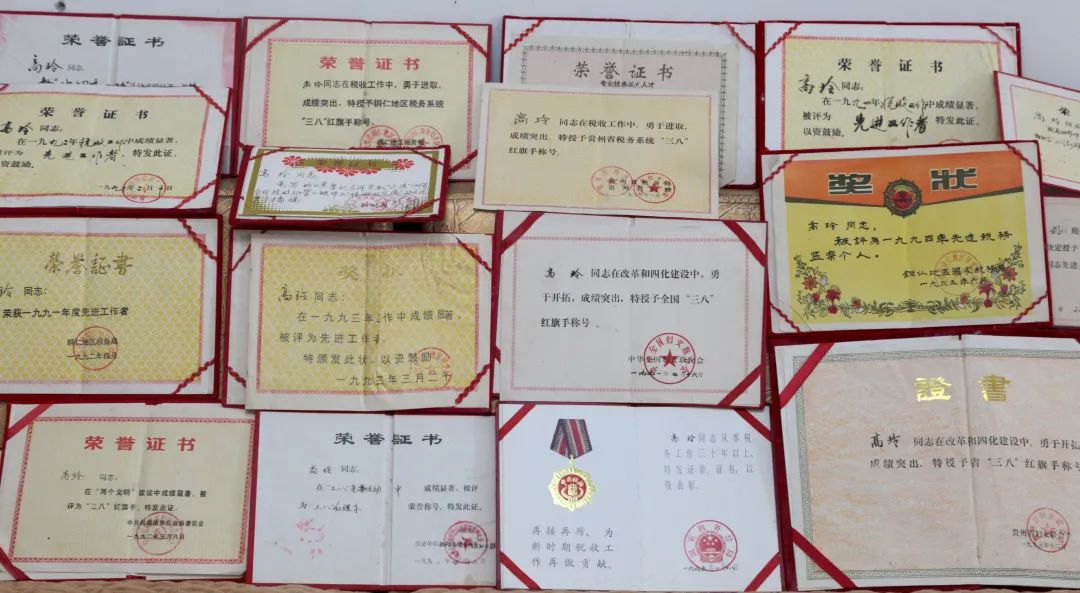 荣誉証书
高玲 同志
荣誉证书
高玲 同志在税收工作中，勇于进取，
成绩突出，特授予铜仁地区税务系统
“三八”红旗手称号。
铜仁地区税务局
荣誉证书
专业技术
荣誉证书
高玲同志：
在一九九一年税收工作中成绩显著，
被评为 先进工作者
以资鼓励。
荣誉证书
高玲同志：
在一九九 年税收工作中成绩显著，
被评为 先进工作者，特发此证，
以资鼓励。
荣誉证书
高玲同志：
高玲 同志在税收工作中，勇于进取，
成绩突出，特授予贵州省税务系统“三八”
红旗手称号。
奖状
高玲 同志：
被评为一九九四年先进税务
监察个人。
铜仁地区国家税务局
荣誉証書
玲 同志：
荣获一九九一年度先进工作者
铜仁地区税务局
一九九二年四月
高玲同志：
在一九九三年 作中成绩显著，
被评为先进工作者。
特颁发此状，以资鼓励
一九九三年三月二
高玲 同志在改革和四化建设中，勇
于开拓，成绩突出，特授予全国“三八”
红旗手称号。
荣誉证书
高玲 同志：
在“两个文明”建设中成绩显著，被
评为“三八”红旗手，特发此证。
一九九二年三月八日
荣誉証书
高玲 同志：
在“三八”竞赛活动中 成绩显著，被评
为 荣誉称号，特发此证。
高玲同志从事税
务工作三十年以上，
特发证章、证书，以
资表彰。
再接再厉，为
新时期税收工
作再做贡献。
國家税务局
證書
高玲 同志在改革和四化建设中，勇于开拓
成绩突出，特授予省“三八”红旗手称号
贵州省妇女联合会